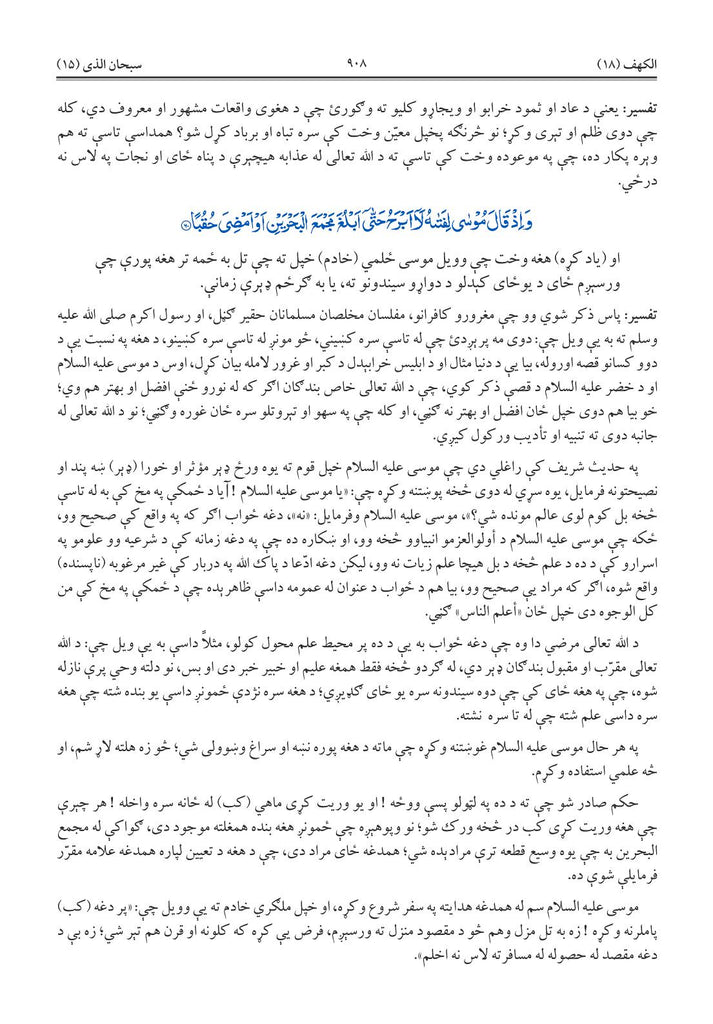 الكهف (١٨)
٩٠٨
سبحان الذى (١٥)
تفسير: يعنې د عاد او ثمود خرابو او ويجاړو کليو ته وګورئ چې د هغوی واقعات مشهور او معروف دي، کله
چې دوی ظلم او تېری وکړ؛ نو څرنګه پخپل معيّن وخت کې سره تباه او برباد کړل شو؟ همداسې تاسې ته هم
وېره پکار ده، چې په موعوده وخت کې تاسې ته د الله تعالى له عذابه هيچېرې د پناه ځای او نجات په لاس نه
درځي.
وَإِذْ قَالَ مُوْسٰى لِفَتٰىهُ لَآ اَبْرَحُ حَتّٰى اَبْلُغَ مَجْمَعَ الْبَحْرَيْنِ اَوْ اَمْضِىَ حُقُبًا
او (ياد کړه) هغه وخت چې وويل موسی ځلمي (خادم) خپل ته چې تل به ځمه تر هغه پورې چې
ورسېږم ځای د يوځای کېدلو د دواړو سيندونو ته، يا به ګرځم ډېرې زمانې.
تفسير: پاس ذکر شوي وو چې مغرورو کافرانو، مفلسان مخلصان مسلمانان حقير ګڼل، او رسول اکرم صلی الله عليه
وسلم ته به يې ويل چې: دوی مه پرېږدئ چې له تاسې سره کښيني، څو مونږ له تاسې سره کښينو، د هغه په نسبت يې د
دوو کسانو قصه اوروله، بيا يې د دنيا مثال او د ابليس خرابېدل د کبر او غرور لامله بيان کړل، اوس د موسی عليه السلام
او د خضر عليه السلام د قصې ذکر کوي، چې د الله تعالی خاص بندګان اګر که له نورو ځنې افضل او بهتر هم وي؛
خو بيا هم دوی خپل ځان افضل او بهتر نه ګڼي، او کله چې په سهو او تېروتلو سره ځان غوره وګڼي؛ نو د الله تعالی له
جانبه دوی ته تنبيه او تأديب ورکول کيږي.
په حديث شريف کې راغلي دي چې موسی عليه السلام خپل قوم ته يوه ورځ ډېر مؤثر او خورا (ډېر) ښه پند او
نصيحتونه فرمايل، يوه سړي له دوی څخه پوښتنه وکړه چې: «يا موسی عليه السلام !آيا د ځمکې په مخ کې به له تاسې
څخه بل کوم لوی عالم موندہ شي؟»، موسی عليه السلام وفرمايل: «نه»، دغه ځواب اګر که په واقع کې صحيح وو،
ځکه چې موسی عليه السلام د أولوالعزمو انبياوو څخه وو، او ښکاره ده چې په دغه زمانه کې د شرعيه وو علومو په
اسرارو کې د ده د علم څخه د بل هيچا علم زيات نه وو، ليکن دغه ادّعا د پاک الله په دربار کې غير مرغوبه (ناپسنده)
واقع شوه، اګر که مراد يې صحيح وو، بيا هم د ځواب د عنوان له عمومه داسې ظاهرېده چې د ځمکې په مخ کې من
کل الوجوه دی خپل ځان «أعلم الناس» ګڼي.
د الله تعالی مرضي دا وه چې دغه ځواب به يې د ده پر محيط علم محول کولو، مثلاً داسې به يې ويل چې: د الله
تعالی مقرّب او مقبول بندګان ډېر دي، له ګردو څخه فقط همغه عليم او خبير خبر دی او بس، نو دلته وحي پرې نازله
شوه، چې په هغه ځای کې چې دوه سيندونه سره يو ځای ګډيږي؛ د هغه سره نژدې ځمونږ داسې يو بنده شته چې هغه
سره داسې علم شته چې له تا سره نشته.
په هر حال موسی عليه السلام غوښتنه وکړه چې ماته د هغه پوره نښه او سراغ وښوولی شي؛ څو زه هلته لاړ شم، او
څه علمي استفاده وکړم.
حکم صادر شو چې ته د ده په لټولو پسې ووځه ! او يو وريت کړی ماهي (کب) له ځانه سره واخله ! هر چېرې
چې هغه وريت کړی کب در څخه ورک شو؛ نو وپوهېږه چې ځمونږ هغه بنده همغلته موجود دی، ګواکې له مجمع
البحرين به چې يوه وسيع قطعه ترې مرادېده شي؛ همدغه ځای مراد دی، چې د هغه د تعيين لپاره همدغه علامه مقرّر
فرمايلې شوې ده.
موسی عليه السلام سم له همدغه هدايته په سفر شروع وکړه، او خپل ملګري خادم ته يې وويل چې: «پر دغه (کب)
پاملرنه وکړه ! زه به تل مزل وهم څو د مقصود منزل ته ورسېږم، فرض يې کړه که کلونه او قرن هم تېر شي؛ زه بې د
دغه مقصد له حصوله له مسافرته لاس نه اخلم».